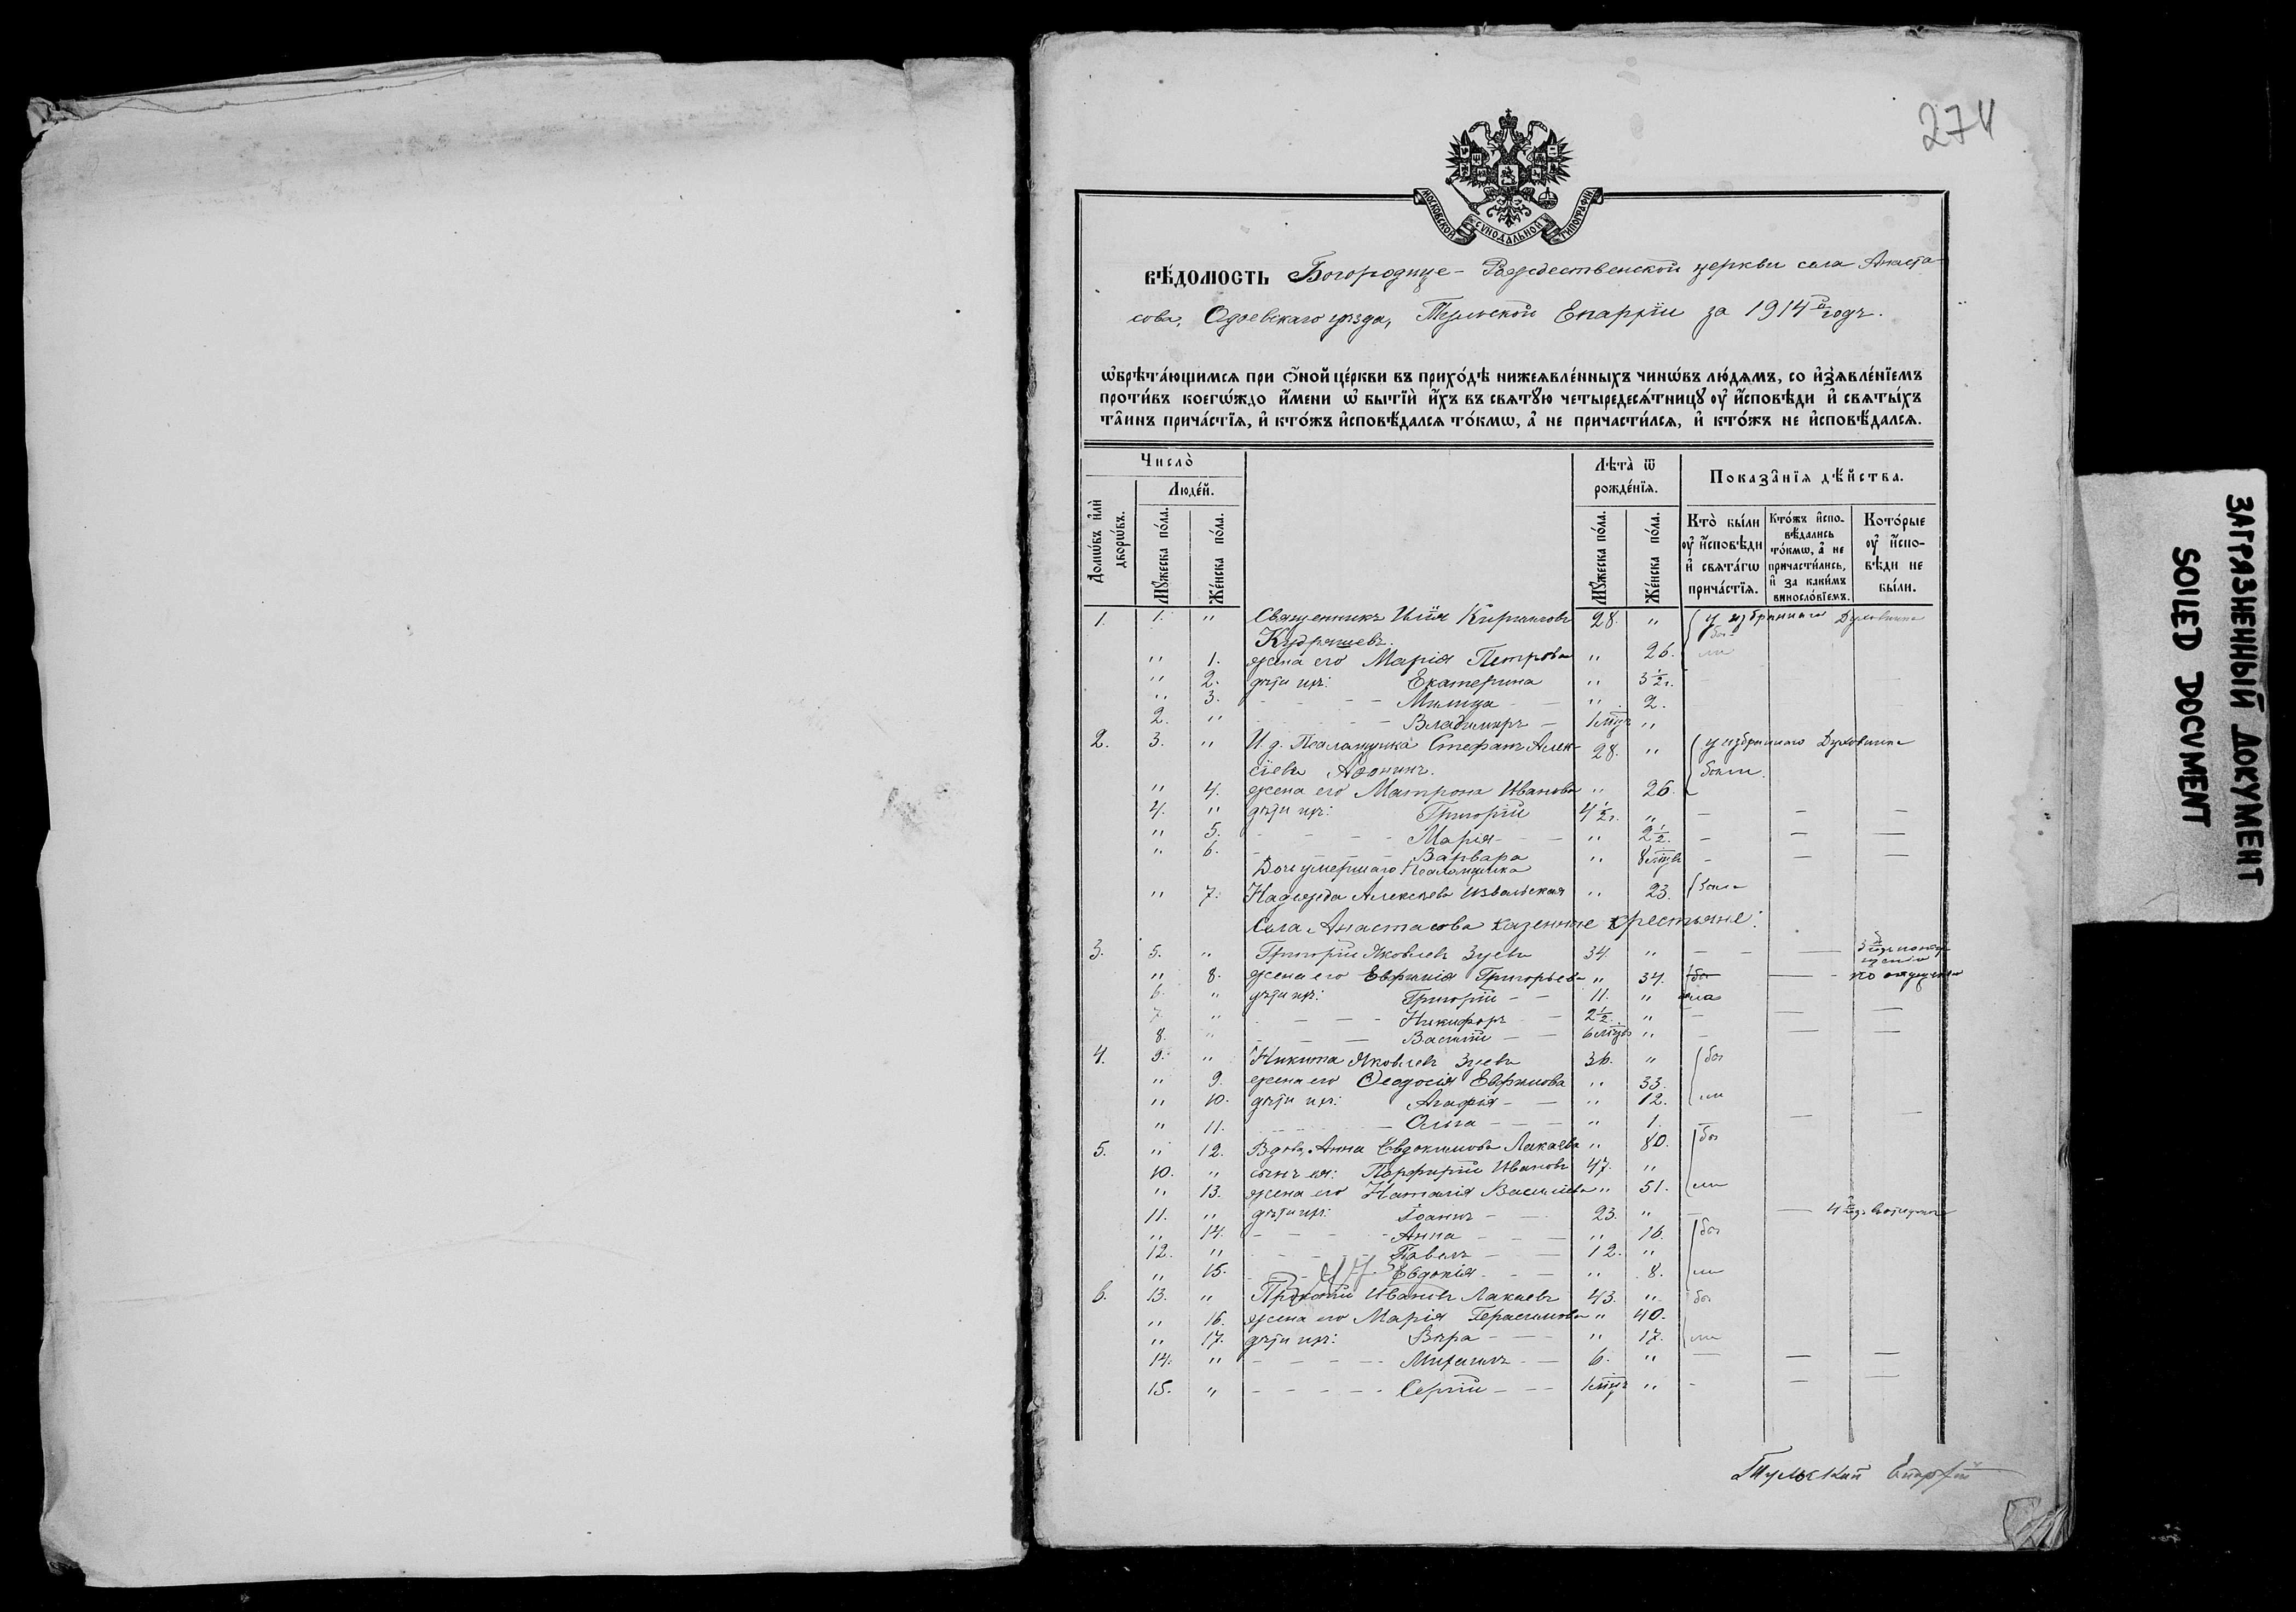 274
МОСКОВСКОЙ СѴНОДАЛЬНОЙ ТИПОГРАФІИ
ВѢ́ДОМОСТЬ Богородице-Рождественской церкви села Анаста-
сова, Одоевскаго уѣзда, Тульской Епархіи за 1914й годъ.
ѡ҆брѣта́ющимсѧ при ѻ҆́ной це́ркви въ прихо́дѣ нижеѧвле́нныхъ чинѡ́въ лю́дѧмъ, со и҆з̾ѧвле́нїемъ
проти́въ коегѡ́ждо и҆́мени ѡ҆ бытїѝ и҆́хъ въ свѧтꙋ́ю четыредесѧ́тницꙋ ᲂу҆ и҆́сповѣди и҆ свѧты́хъ
та̑инъ прича́стїѧ, и҆ кто́жъ и҆сповѣ́далсѧ то́кмѡ, а҆ не причасти́лсѧ, и҆ кто́жъ не и҆сповѣ́далсѧ.
Число̀
Люде́й.
Лѣта̀ ѿ рожде́нїѧ.
Показа̑нїѧ дѣ́йства.
Домѡ́въ и҆лѝ дворѡ́въ.
Мꙋ́жеска по́ла.
Же́нска по́ла.
Мꙋ́жеска по́ла.
Же́нска по́ла.
Кто̀ бы́ли ᲂу҆ и҆́сповѣди и҆ свѧта́гѡ прича́стїѧ.
Кто́жъ и҆спо-вѣ́дались то́кмѡ, а҆ не причасти́лись, и҆ за каки́мъ виносло́вїемъ.
Кото́рые ᲂу҆ и҆́спо-вѣди не бы́ли.
1. 1. " Священникъ Илія Кирилловъ 28. " у избраннаго Духовника
Кудряшевъ. бы-
" 1. жена его Марія Петрова " 26. ли
" 2. дѣти ихъ: Екатерина " 3½ г.
" 3. - - - Милица - " 2.
2. " - - - Владимиръ - 1 мцъ "
2. 3. " И. д. Псаломщика Стефанъ Алек- 28. " у избраннаго Духовника
сѣевъ Афонинъ. были.
" 4. жена его Матрона Иванова " 26.
4. " дѣти ихъ: Григорій 4½ г. " - - -
" 5. - - - Марія - " 2½. - - -
" 6. - - - Варвара " 8 мцвъ - - -
Дочь умершаго Псаломщика
" 7. Надежда Алексѣева Извольская " 23. была
Села Анастасова казенные крестьяне:
3. 5. " Григорій Яковлевъ Зуевъ 34. " - -
" 8. жена его Евфимія Григорьева " 34. бы- - по опущенію
6. " дѣти ихъ: Григорій - - 11. " ла
7. " - - - Никифоръ - 2½. " - - -
8. " - - - Василій - - 6 мцвъ " - - -
4. 9. " Никита Яковлевъ Зуевъ 36. " бы
" 9. жена его Ѳеодосія Евфимова " 33.
" 10. дѣти ихъ: Агафія - - " 12. ли
" 11. - - - Ольга - - - " 1. - - -
5. " 12. Вдова, Анна Евдокимова Лакаева " 80. бы
10. " сынъ ея: Порфирій Ивановъ 47. "
" 13. жена его Наталія Василіева " 51. ли
11. " дѣти ихъ: Іоаннъ - - 23. " - -
" 14. - - - Анна - - - " 16. бы
12. " - - - Павелъ - - 12. "
" 15. - - Евдокія - - " 8. ли
6. 13. " Иванъ Лакаевъ 43. " бы
" 16. жена его Марія Герасимова " 40.
" 17. дѣти ихъ: Вѣра - - " 17. ли
14. " - - - Михаилъ - - 6. " - - -
15. " - - - Сергій - - 1 мцъ " - - -
Тульский Епарх
ЗАГРЯЗНЕННЫЙ ДОКУМЕНТ
SOILED DOCUMENT